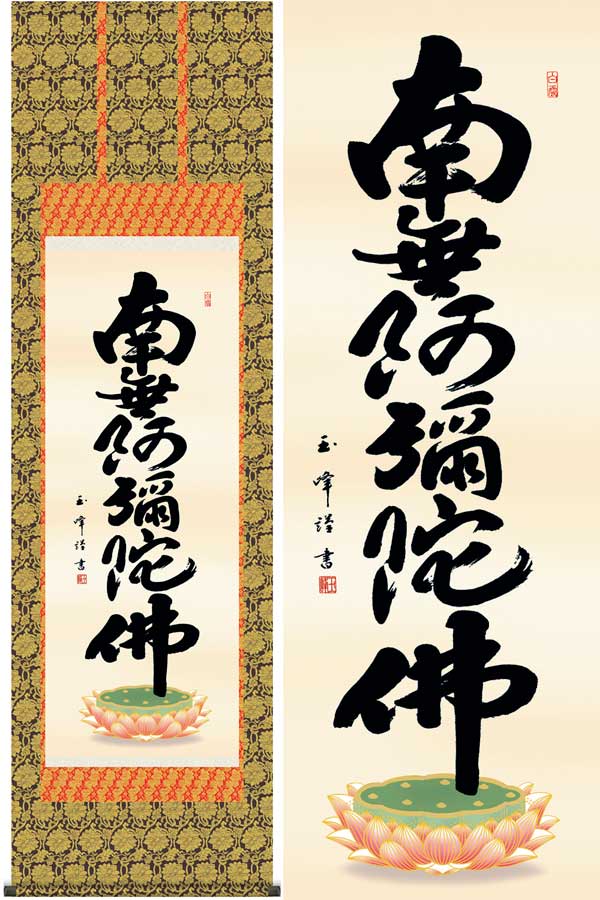 南無阿彌陀佛
玉峰謹書
南無阿彌陀佛
玉峰謹書